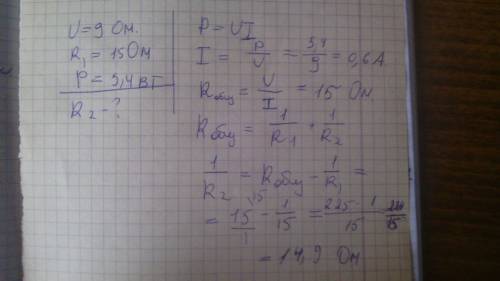 U=9 Ом.
R₁ = 15 Ом
P = 5,4 вт
R₂ - ?
P = UI
I = P/U = 5,4/9 = 0,6 А
Rобщ = U/I = 15 Ом
Rобщ = 1/R₁ + 1/R₂
1/R₂ = Rобщ - 1/R₁ =
= 15/1 - 1/15 = 225-1/15
= 14,9 Ом